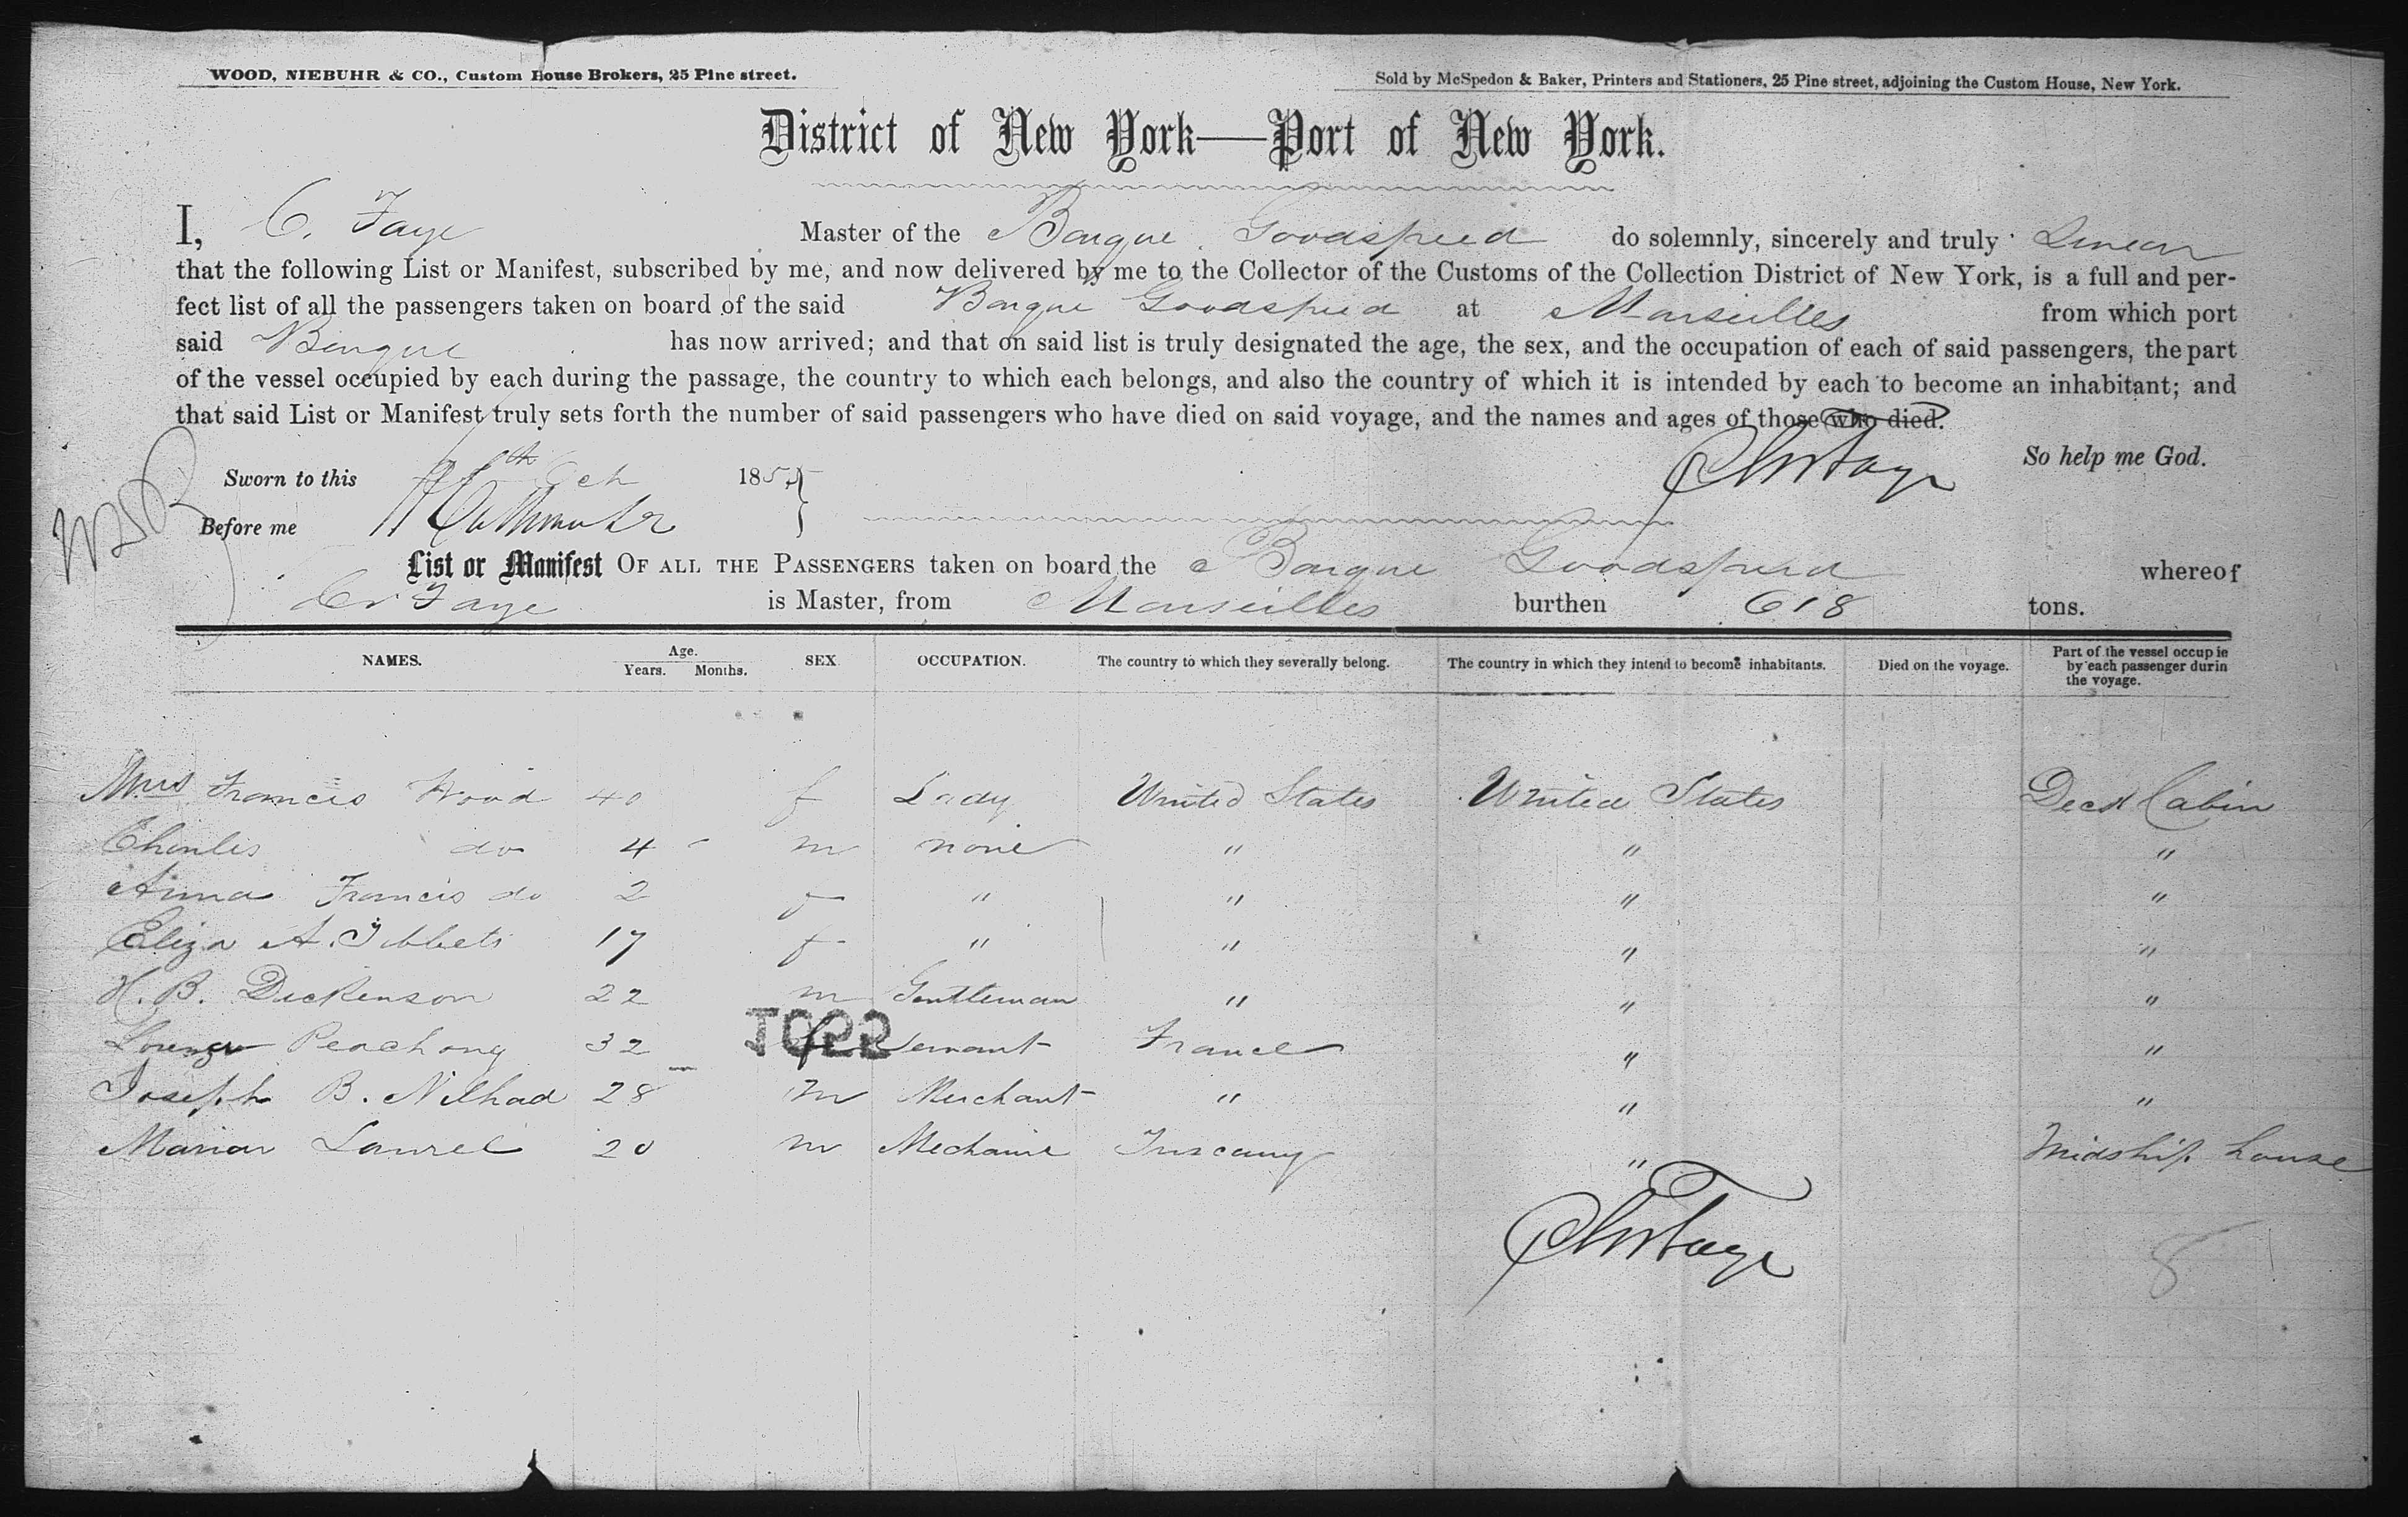 WOOD, NIEBUHR & CO., Custom House Brokers, 25 Pine street.
Sold by McSpedon & Baker, Printers and Stationers, 25 Pine street, adjoining the Custom House, New York.
District of New York—Port of New York.
I, C. Faye Master of the Barque Goodspeed do solemnly, sincerely and truly Swear
that the following List or Manifest, subscribed by me, and now delivered by me to the Collector of the Customs of the Collection District of New York, is a full and per-
fect list of all the passengers taken on board of the said Barque Goodspeed at Marseilles from which port
said Barque has now arrived; and that on said list is truly designated the age, the sex, and the occupation of each of said passengers, the part
of the vessel occupied by each during the passage, the country to which each belongs, and also the country of which it is intended by each to become an inhabitant; and
that said List or Manifest truly sets forth the number of said passengers who have died on said voyage, and the names and ages of those who died.
So help me God.
Sworn to this Oct 1855
Before me
List or Manifest OF ALL THE PASSENGERS taken on board the Barque Goodspeed whereof
Chr Faye is Master, from Marseilles burthen 618 tons.
NAMES. Age. Years. Months. SEX OCCUPATION. The country to which they severally belong. The country in which they intend to become inhabitants. Died on the voyage. Part of the vessel occup ie by each passenger durin the voyage.
Mrs Francis Wood 40 f Lady United States United States Deck Cabin
Charles do 4 - m none " " "
Anna Francis do 2 f " " " "
Eliza A. Tibbets 17 f " " " "
H. B. Dickenson 22 m Gentleman " " "
Peachong 32 f Servant France " "
Joseph B. Nilhad 28 m Merchant " " "
Marian Laurel 20 m Mechanic Tuscany " Midship house
Chr Faye
8